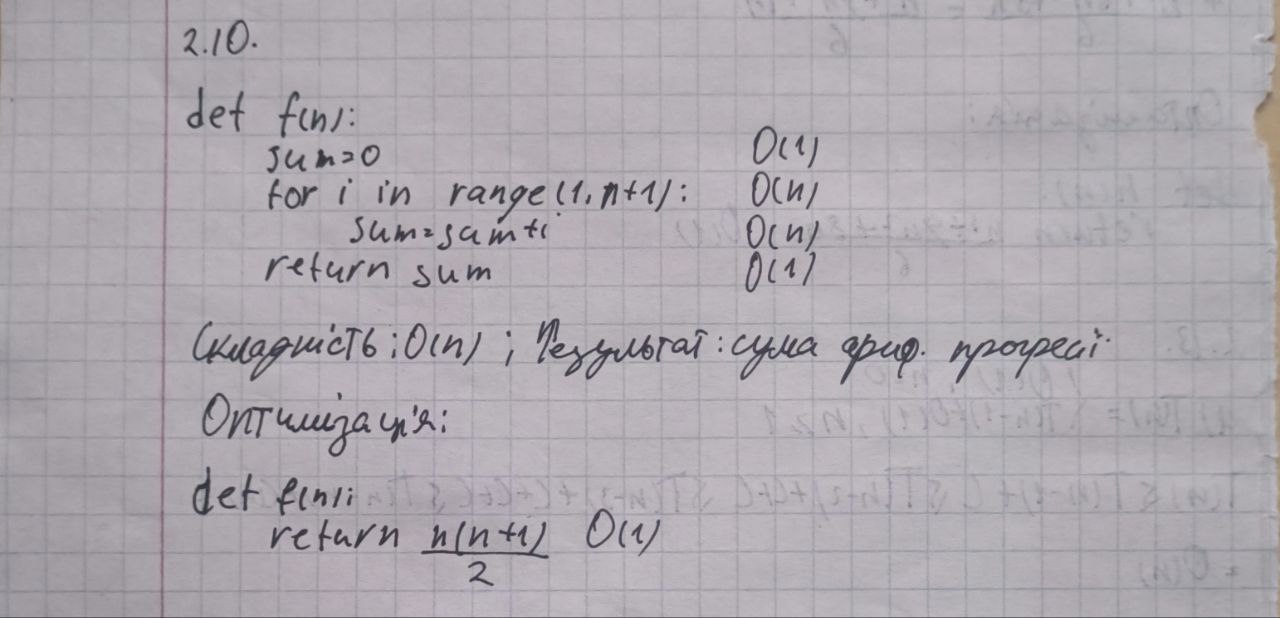 2.10.
def f(n):
sum=0 O(1)
for i in range(1, n+1): O(n)
sum=sum+i O(n)
return sum O(1)
Складність: O(n); Результат: сума ариф. прогресії
Оптимізація:
def f(n):
return n(n+1)/2 O(1)